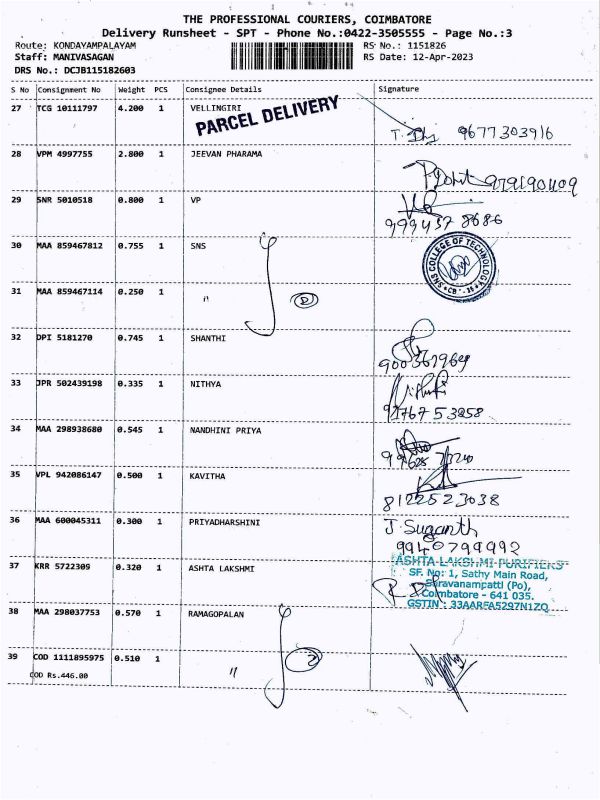 THE PROFESSIONAL COURIERS, COIMBATORE
Delivery Runsheet - SPT - Phone No.:0422-3505555 - Page No.:3
Route: KONDAYAMPALAYAM RS No.: 1151826
Staff: MANIVASAGAN RS Date: 12-Apr-2023
DRS No.: DCJB115182603
S No Consignment No Weight PCS Consignee Details Signature
27 TCG 10111797 4.200 1 VELLINGIRI
PARCEL DELIVERY
9677303916
28 VPM 4997755 2.800 1 JEEVAN PHARAMA
29 SNR 5010518 0.800 1 VP
9994378686
30 MAA 859467812 0.755 1 SNS
SNS COLLEGE OF TECHNOLOGY
31 MAA 859467114 0.250 1 " 2
32 DPI 5181270 0.745 1 SHANTHI
33 JPR 502439198 0.335 1 NITHYA
34 MAA 298938680 0.545 1 NANDHINI PRIYA
35 VPL 942086147 0.500 1 KAVITHA
8122523038
36 MAA 600045311 0.300 1 PRIYADHARSHINI J. Suganth
9940799992
37 KRR 5722309 0.320 1 ASHTA LAKSHMI
ASHTA LAKSHMI PURIFIERS
SF. No: 1, Sathy Main Road,
Saravanampatti (Po),
Coimbatore - 641 035.
GSTIN : 33AARFA5297N1ZQ
38 MAA 298037753 0.570 1 RAMAGOPALAN
39 COD 1111895975 0.510 1 " 2
COD Rs.446.00